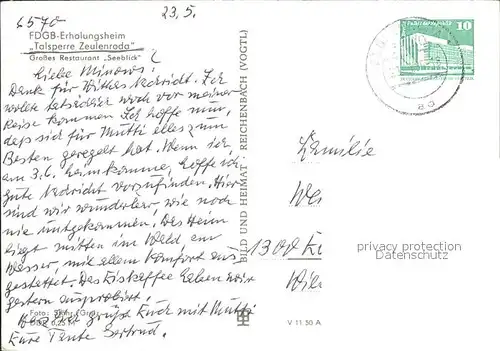 6570
23.5.
FDGB-Erholungsheim
„Talsperre Zeulenroda"
Großes Restaurant „Seeblick"
Liebe Minows!
Dank für Nachricht. Ich
wollte tatsächlich noch vor meiner
Reise kommen. Ich hoffe nun,
daß sich für Mutti alles zum
Besten geregelt hat. Wenn ich
am 3.6. heimkomme, hoffe ich
gute Nachricht vorzufinden. Hier
sind wir wunderbar wie noch
nie untgekommen. Das Heim
liegt mitten im Wald am
Wasser, mit allem Komfort aus-
gestattet. Das Eiskaffee haben wir
gestern ausprobiert.
Foto:
DDR 0,25 M
Herzlich grüßt Euch mit Mutti
Eure Tante Gertrud.
BILD UND HEIMAT REICHENBACH (VOGTL)
V 11 50 A
10
Familie
1300
privacy protection
Datenschutz